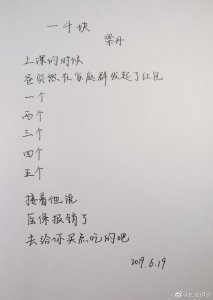 一千块
梁丹
上课的时候
爸突然在家庭群发起了红包
一个
两个
三个
四个
五个
接着他说
医保报销了
去给你买点吃的吧
2019.6.19